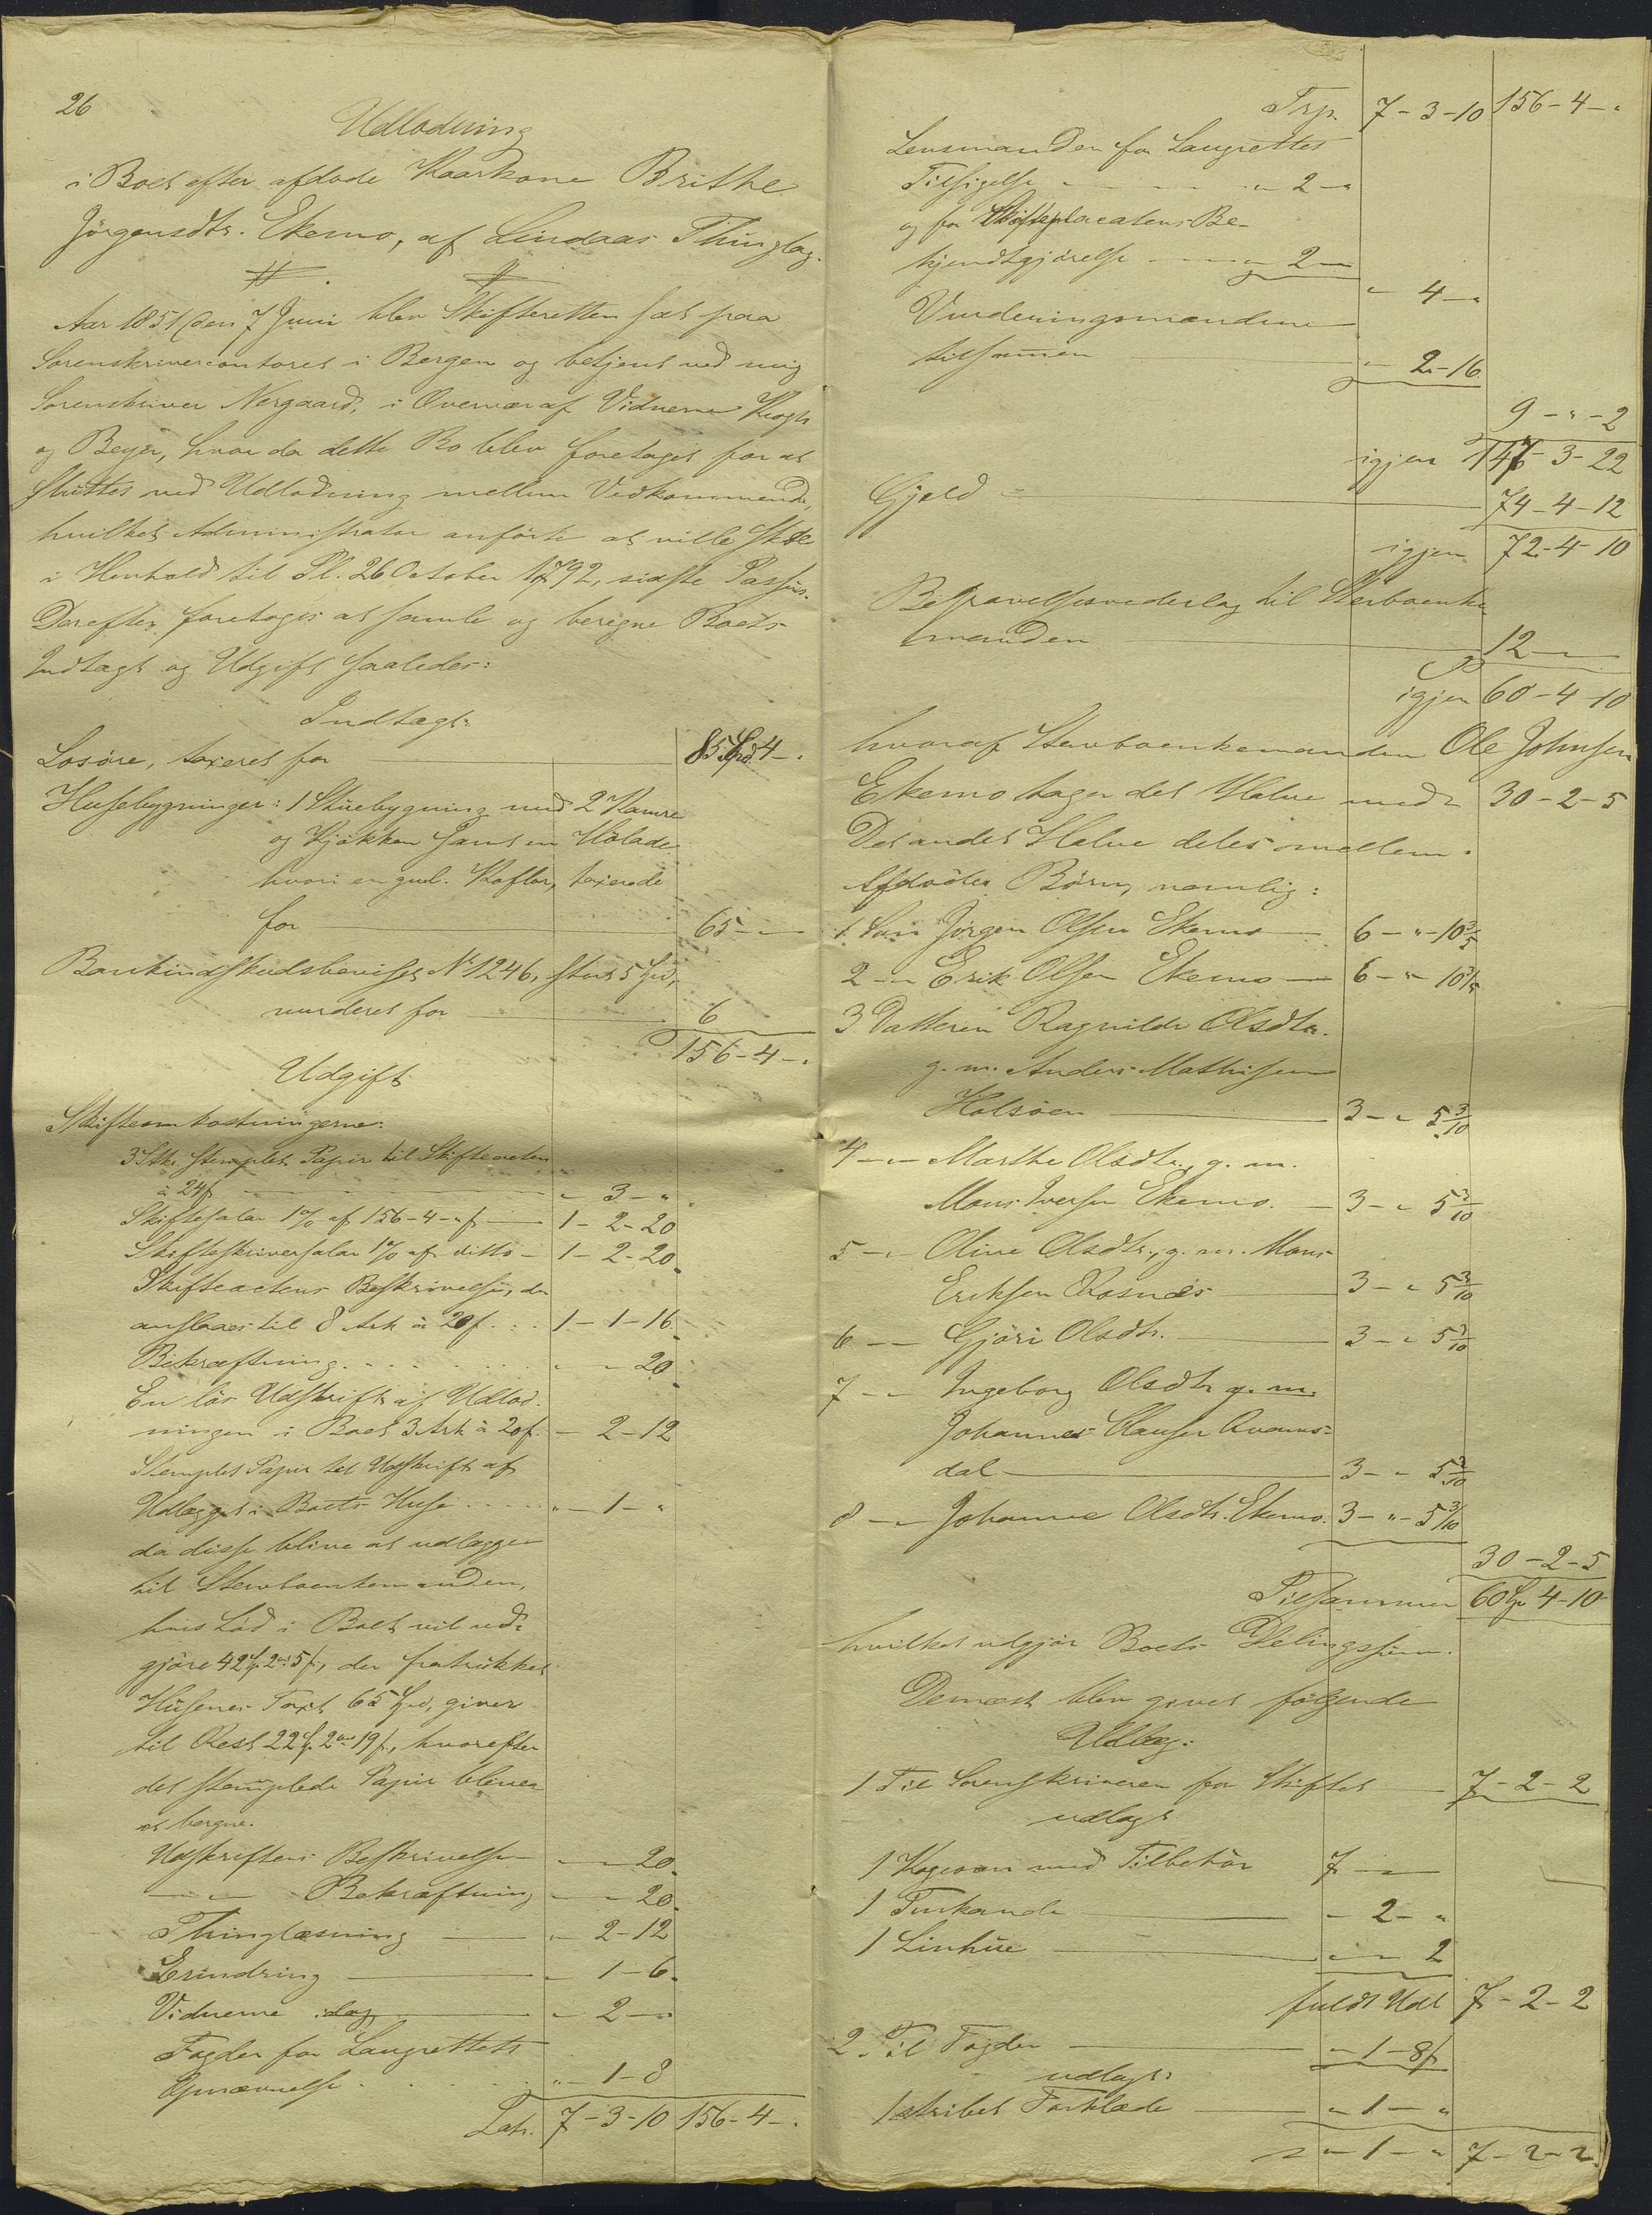 26
Udlodning
i Boet efter afdøde Kaarkone Brithe
Jörgensdtr. Ekemo, af Lindaas Thinglag.
Aar 1851 den 7 Juni blev Skifteretten sat paa
Sorenskrivercontoret i Bergen og betjent ved mig
Sorenskriver Nergaard, i Overvær af Vidnerne Krogh
og Beyer, hvor da dette Bo blev foretaget for at
sluttes ved Udlodning mellem Vedkommende,
hvilket Administrator anförte at ville skee
i Henhold til Pl. 26 October 1792, sidste Passus.
Derefter foretoges at samle og beregne Boets
Indtægt og Udgift saaledes:
Indtægt:
Losöre, taxeret for 85 Spd. 4 - "
Husebygninger: 1 Stuebygning med 2 Kamre
og Kjökken samt en Hölade
hvori en gml. Koflor, taxerede
for 65 - "
Bankindskudsbeviset No 1246, stort 5 Spd,
vurderet for 6
156 - 4 - "
Udgift
Skifteomkostningerne:
3 Stkr. stemplet Papir til Skifteacten
à 24 s " 3 - "
Skiftesalar 1% af 156 - 4 - " s 1 - 2 - 20
Skifteskriversalar 1% af ditto 1 - 2 - 20
Skifteactens Beskrivelse, der
anslaaes til 8 Ark à 20 s. 1 - 1 - 16
Bekræftning " - " 20
En lös Udskrift af Udlod-
ningen i Boet 3 Ark à 20 s. - 2 - 12
Stemplet Papir til Udskrift af
Udlægget i Boets Huse " - 1 - "
da disse blive at udlægge
til Stervboenkemanden,
hvis Lod i Boet vil ud-
gjöre 42 Sp 2 ort 5 s, der fratrukket
Husenes Taxt 65 Spd, giver
til Rest 22 Sp. 2 ort 19 s, hvorefter
det stemplede Papir bliver
at beregne.
Udskriftens Beskrivelse " - " 20
- " - Bekræftning " - " 20
Thinglæsning " - 2 - 12
Erindring " - 1 - 6
Vidnerne idag " - 2 - "
Fogden for Laugrettets
Opnævnelse " - 1 - 8
Lats. 7 - 3 - 10 156 - 4 - "
Trsp. 7 - 3 - 10 156 - 4 - "
Lensmanden for Laugrettets
Tilsigelse " 2 - "
og for Skifteplacatens Be-
kjendtgjörelse " 2 - "
" 4 - "
Vurderingsmændene
tilsammen " 2 - 16
9 - " - 2
igjen 147 - 3 - 22
Gjeld 74 - 4 - 12
igjen 72 - 4 - 10
Begravelsesvederlag til Stervboenke
manden 12 - "
igjen 60 - 4 - 10
hvoraf Stervboenkemanden Ole Johnsen
Ekemo tager det Halve med 30 - 2 - 5
Det andet Halve deles mellem
Afdödes Börn, nemlig:
1 Sön Jörgen Olsen Ekemo 6 - " - 10 3/5
2 - " Erik Olsen Ekemo 6 - " - 10 3/5
3 Datteren Ragnilde Olsdtr.
g. m. Anders Mathisen
Holsöen 3 - " 5 3/10
4 - " - Marthe Olsdtr., g. m.
Mons Iversen Ekemo. 3 - " 5 3/10
5 - " - Oline Olsdtr., g. m. Mons
Eriksen Rosnæs 3 - " 5 3/10
6 - " Gjöri Olsdtr. 3 - " 5 3/10
7 - " Ingeborg Olsdtr g. m.
Johannes Clausen Qvams-
dal 3 - " 5 3/10
8 - " Johanne Olsdtr. Ekemo. 3 - " - 5 3/10
30 - 2 - 5
Tilsammen 60 Sp 4 - 10
hvilket udgjör Boets Delingssum.
Dernæst blev givet fölgende
Udlæg:
1 Til Sorenskriveren for Skiftet 7 - 2 - 2
udlagt
1 Kogeovn med Tilbehör 7 - "
1 Tinkande - 2 - "
1 Linhue " - " 2
fuldt Udl 7 - 2 - 2
2. Til Fogden " - 1 - 8 s
udlagt:
1 stribet Forklæde " - 1 - "
" - 1 - " 7 - 2 - 2